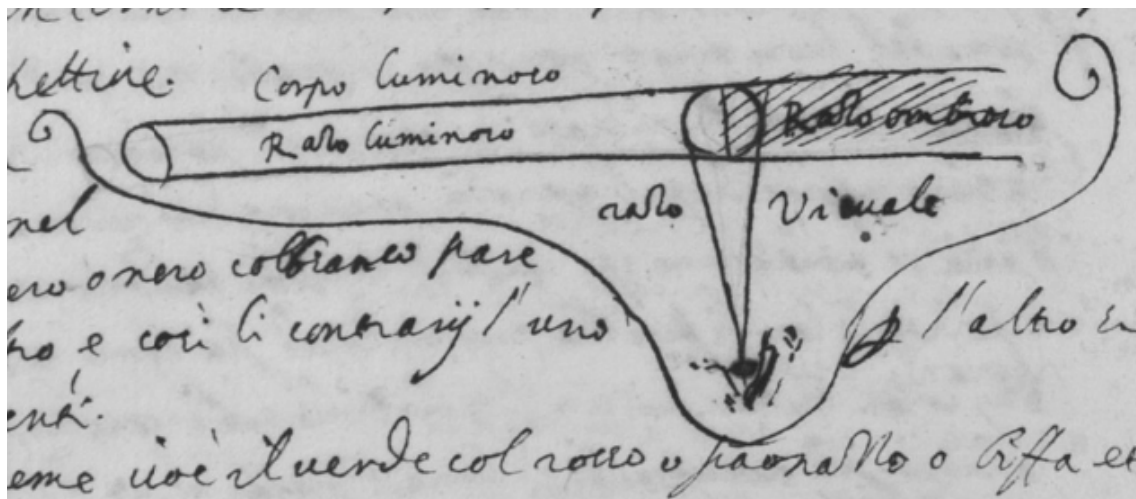 hettine. Corpo luminoso
Razo luminoso Razo ombroso
razo Visuale
nel
ero o nero col bianco pare
tro e così li contrarij l'uno l'altro
enti.
eme cioè il verde col rosso o paonazzo o biffa et